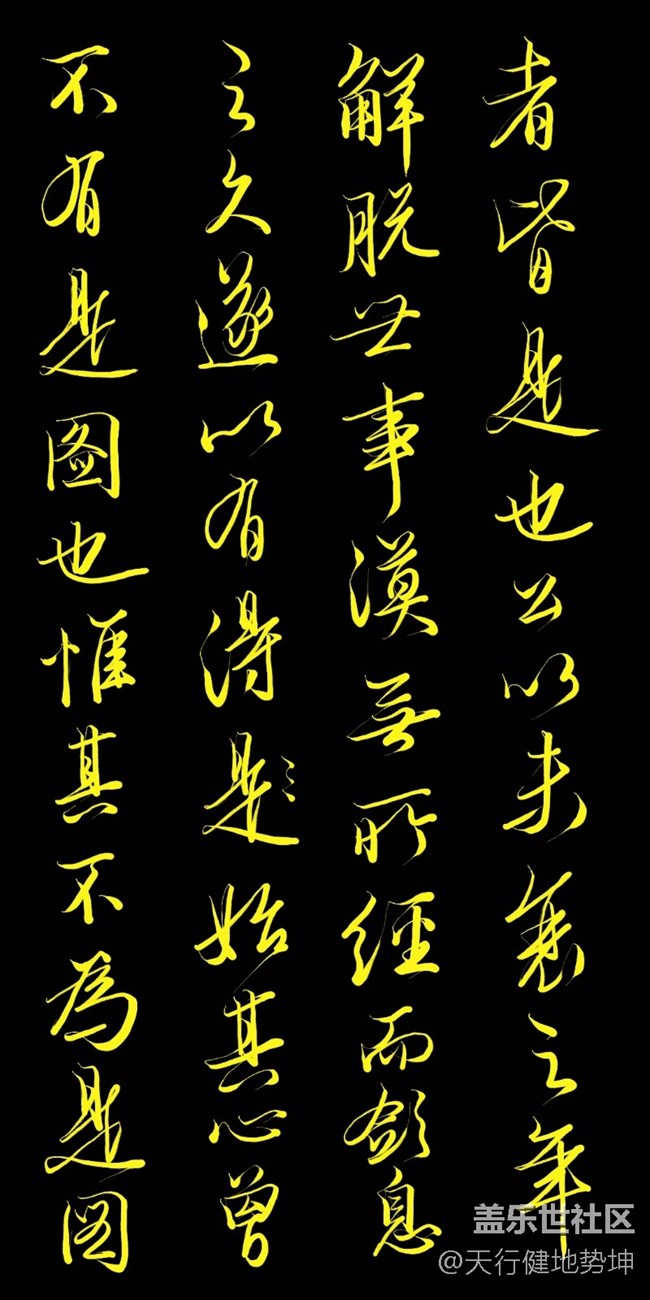 者皆是也公以未衰之年
解脱世事漠無所經而斂息
之久遂以有得是始其心曾
不有是图也惟其不為是图
盖乐世社区
@天行健地势坤